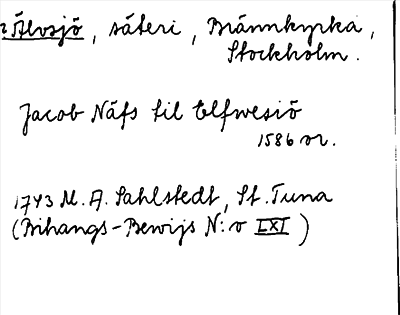 Älvsjö, säteri, Brännkyrka,
Stockholm.
Jacob Näfs til Elfwesiö
1586 or.
1743 M. A. Sahlstedt, St. Tuna
(Bihangs-Bewijs N:o LXI)